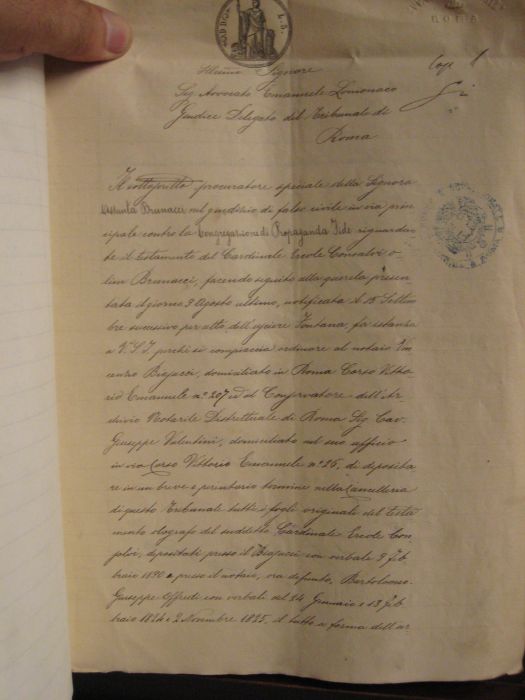 Illmo Signore
Sig Avvocato Emanuele Lomonaco
Giudice Delegato del Tribunale di
Roma
Il sottoscritto procuratore speciale della Signora
Assunta Brunacci nel giudizio di falso civile in via prin
cipale contro la Congregazione di Propaganda Fide riguardan
te il testamento del Cardinale Ercole Consalvi o
lim Brunacci, facendo seguito alla querela presen
tata il giorno 9 Agosto ultimo, notificata il 15 Settem
bre successivo per atto dell'usciere Fontana, fa istanza
a V.S.I. perchè si compiaccia ordinare al notaio Vin
cenzo Bugacci, domiciliato in Roma Corso Vitto
rio Emanuele no 207 ed al Conservatore dell'Ar
chivio Notarile Distrettuale di Roma Sig Cav.
Giuseppe Valentini, domiciliato nel suo afficio
in via Corso Vittorio Emanuele no 26, di deposita
re in un breve e perentorio termine nella Cancelleria
di questo Tribunale tutti i fogli originali del testa
mento olografo del suddetto Cardinale Ercole Con
salvi, depositati presso il Bugacci con verbale 9 Feb
braio 1890 e presso il notaio, ora defunto, Bartolomeo
Giuseppe Offredi con verbali del 24 Gennaio e 13 Feb
braio 1824 e 2 Novembre 1825, il tutto a forma dell'ar